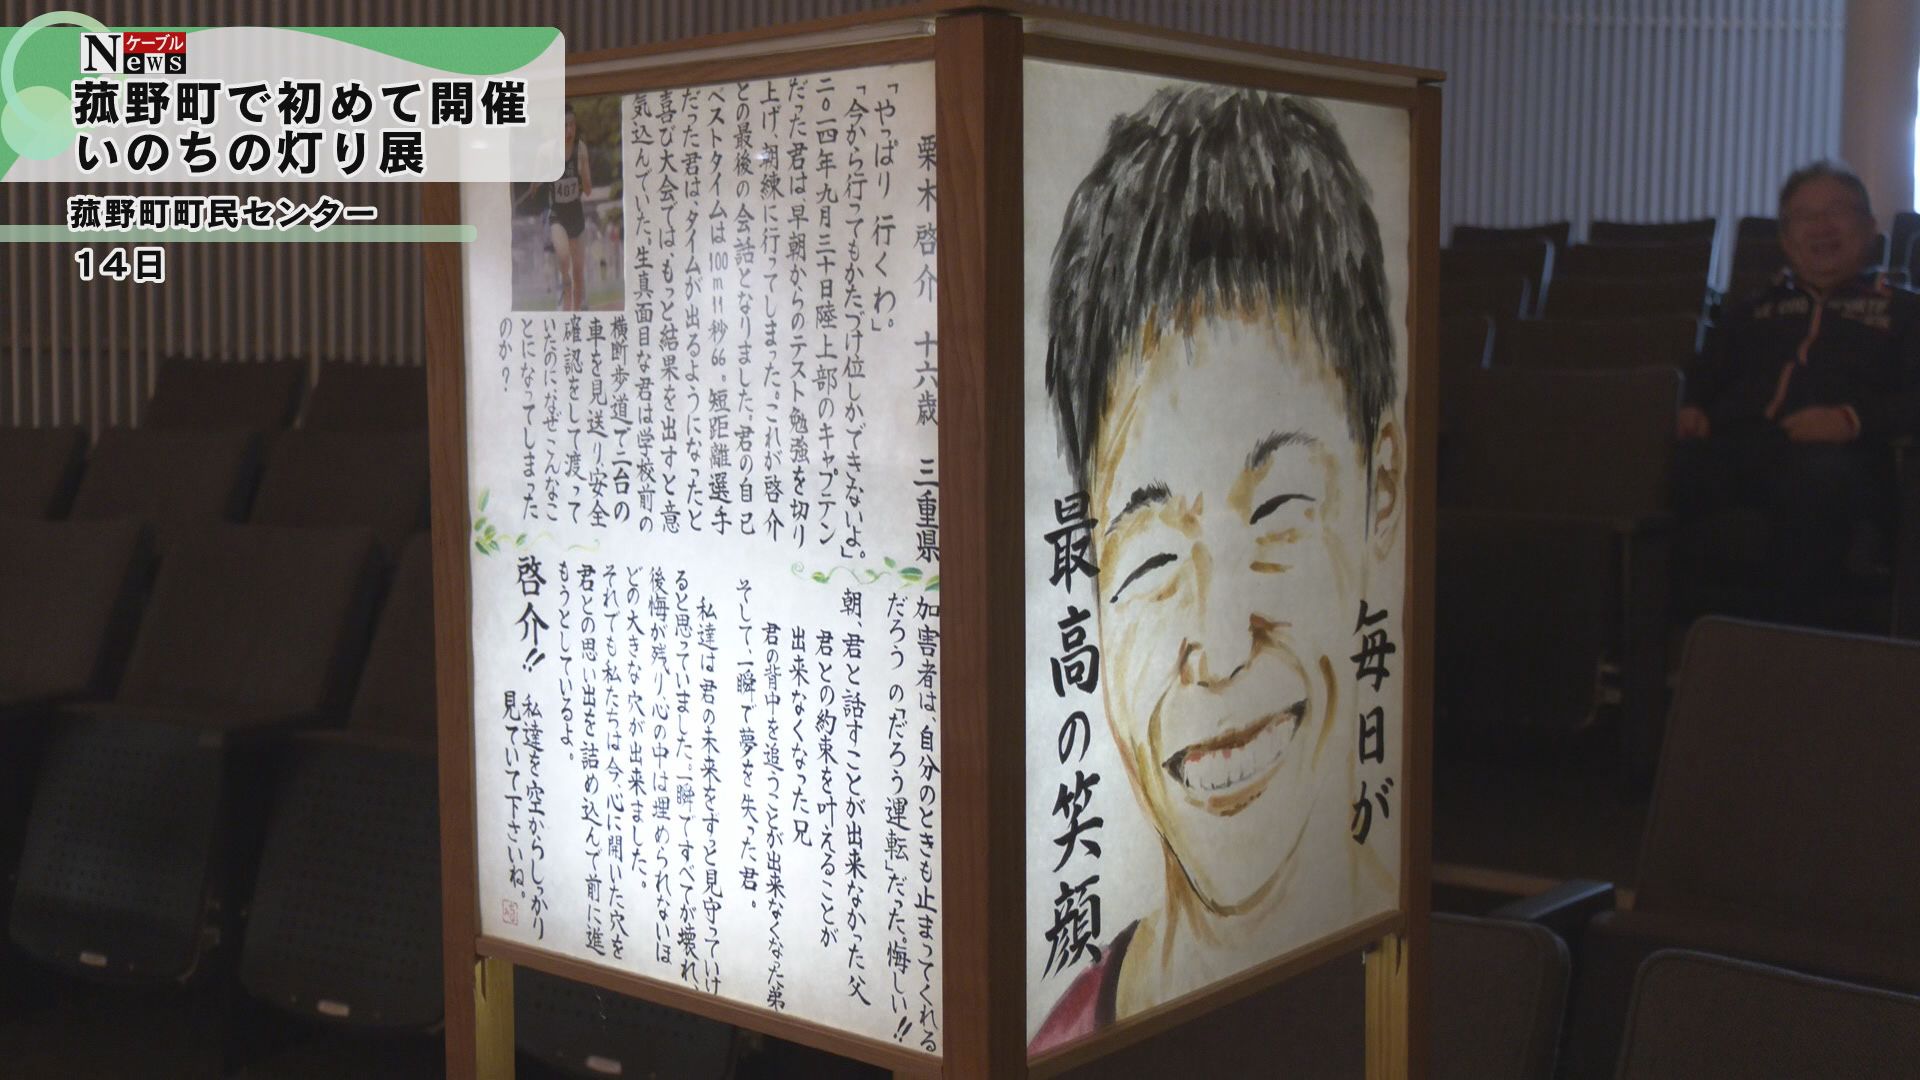 ケーブル
News
菰野町で初めて開催
いのちの灯り展
菰野町町民センター
14日
栗木 啓介 十六歳 三重県
「やっぱり 行くわ。」
「今から行ってもかたづけ位しかできないよ。」
二〇一四年九月三十日陸上部のキャプテン
だった君は、早朝からのテスト勉強を切り
上げ、朝練に行ってしまった。これが啓介
との最後の会話となりました。君の自己
ベストタイムは100m11秒66。短距離選手
だった君は、タイムが出るようになったと
喜び大会では、もっと結果を出すと意
気込んでいた。生真面目な君は学校前の
横断歩道で二台の
車を見送り、安全
確認をして渡って
いたのに、なぜこんなこ
とになってしまった
のか?
加害者は、自分のときも止まってくれる
だろう の「だろう運転」だった。悔しい!!
朝、君と話すことが出来なかった父
君との約束を叶えることが
出来なくなった兄
君の背中を追うことが出来なくなった弟
そして、一瞬で夢を失った君。
私達は君の未来をずっと見守っていけ
ると思っていました。一瞬ですべてが壊れ、
後悔が残り心の中は埋められないほ
どの大きな穴が出来ました。
それでも私たちは今、心に開いた穴を
君との思い出を詰め込んで前に進
もうとしているよ。
啓介!! 私達を空からしっかり
見ていて下さいね。
毎日が
最高の笑顔
407